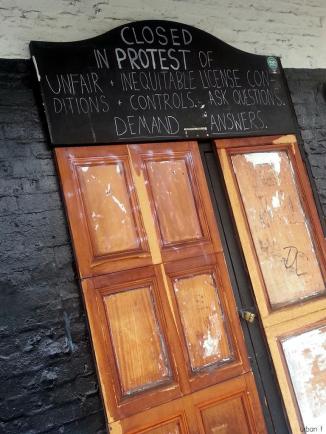 CLOSED
IN PROTEST OF
UNFAIR + INEQUITABLE LICENSE CON
DITIONS + CONTROLS. ASK QUESTIONS.
DEMAND ANSWERS.
urban f